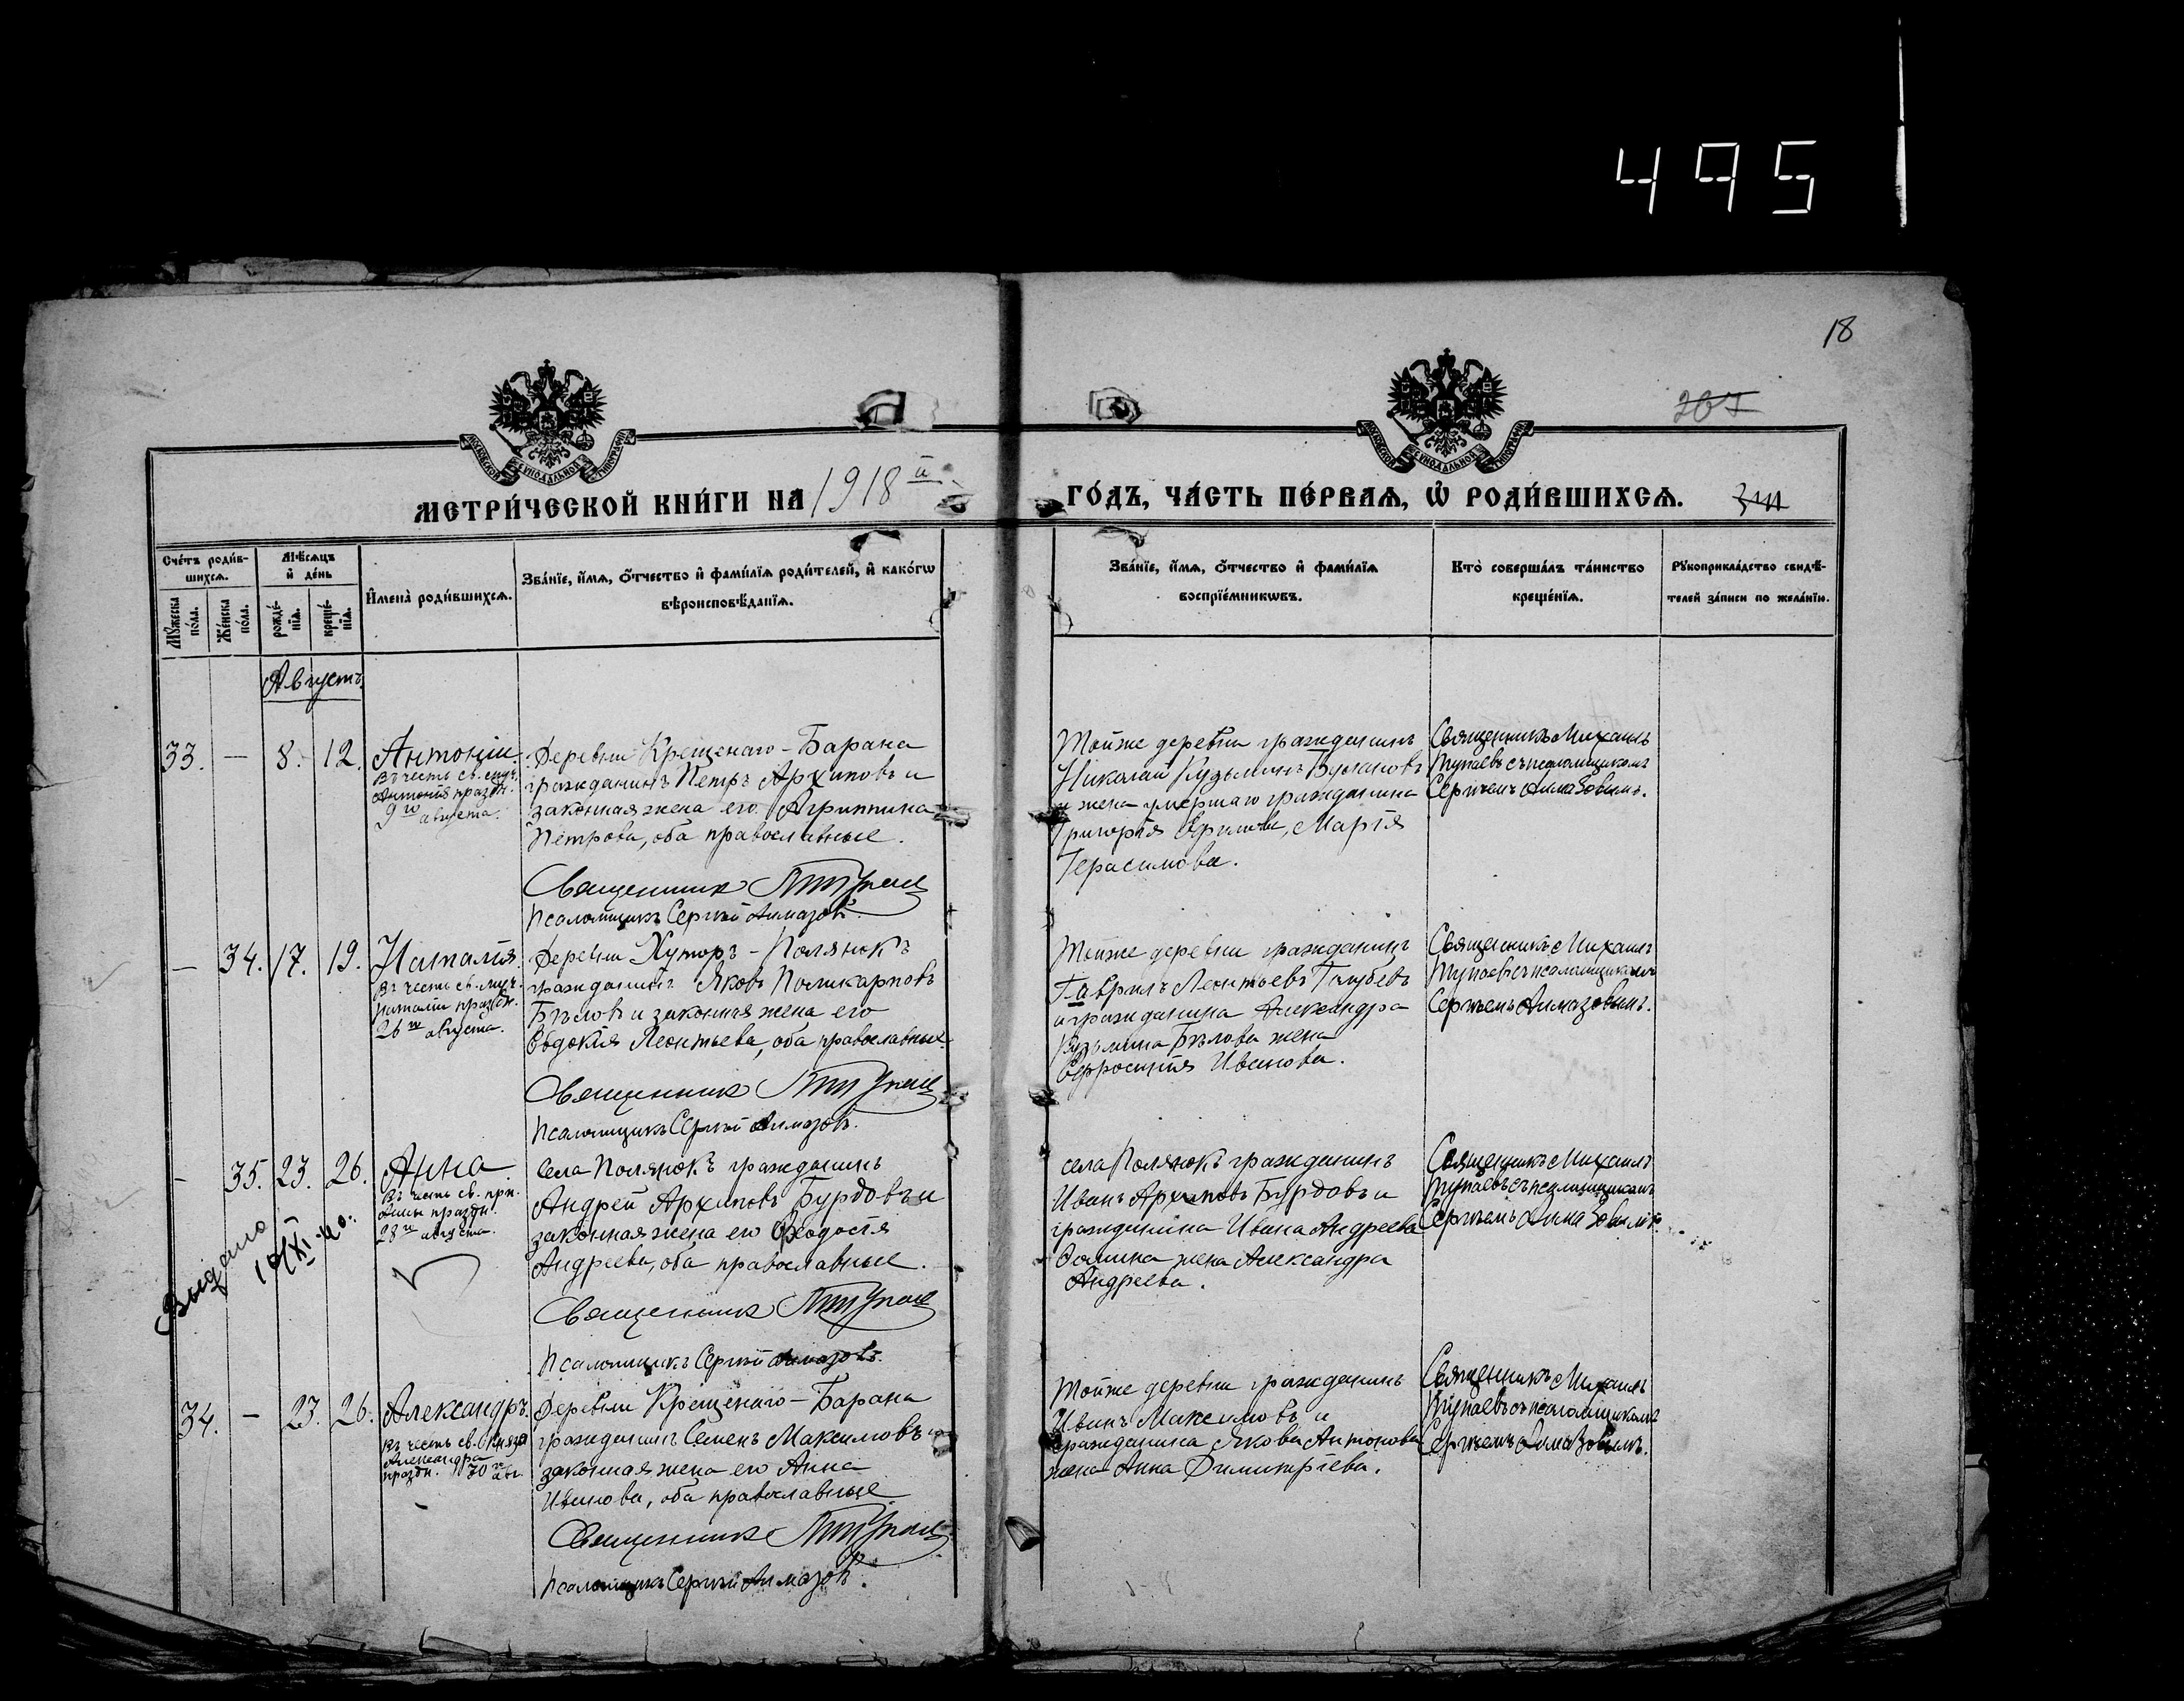 495
18
207
МОСКОВСКОЙ СѴНОДАЛЬНОЙ ТИПОГРАФІИ
МОСКОВСКОЙ СѴНОДАЛЬНОЙ ТИПОГРАФІИ
МЕТРИ́ЧЕСКОЙ КНИ́ГИ НА 1918й
ГО́ДЪ, ЧА́СТЬ ПЕ́РВАѦ, Ѡ҆ РОДИ́ВШИХСѦ.
Сче́тъ роди́в-
шихсѧ.
Мꙋ́жеска по́ла.
Же́нска по́ла.
Мѣ́сѧцъ
и҆ де́нь
рожде́-
нїѧ.
креще́-
нїѧ.
И҆мена̀ роди́вшихсѧ.
Зва́нїе, и҆́мѧ, ѻ҆́тчество и҆ фами́лїѧ роди́телей, и҆ како́гѡ
вѣроисповѣ́данїѧ.
Зва́нїе, и҆́мѧ, ѻ҆́тчество и҆ фами́лїѧ
воспрїе́мникѡвъ.
Кто̀ соверша́лъ та́инство
креще́нїѧ.
Рꙋкоприкла́дство свидѣ́-
телей за́писи по жела́нїю.
Августъ.
33. — 8. 12.
Антоній.
Въ честь св. муч.
Антонія праздн.
9го августа.
Деревни Крещенаго-Барана
гражданинъ Петръ Архиповъ и
законная жена его Агриппина
Петрова, оба православные.
Священникъ МТупаев
Псаломщикъ Сергѣй Алмазовъ.
Тойже деревни гражданинъ
Николай Кузьминъ
и жена умершаго гражданина
Григорія Марія
Герасимова.
Священникъ Михаилъ
Тупаевъ съ псаломщикомъ
Сергѣемъ Алмазовымъ.
— 34. 17. 19.
Наталія.
Въ честь св. муч.
Наталіи праздн.
26го августа.
Деревни Хуторъ-Полянокъ
гражданинъ Яковъ Поликарповъ
Бѣловъ и законная жена его
Евдокія Леонтьева, оба православные.
Священникъ МТупаев
Псаломщикъ Сергѣй Алмазовъ.
Тойже деревни гражданинъ
Гаврилъ Леонтьевъ Голубевъ
и гражданина Александра
Кузьмина Бѣлова жена
Ефросинія Иванова.
Священникъ Михаилъ
Тупаевъ съ псаломщикомъ
Сергѣемъ Алмазовымъ.
- 35. 23. 26.
Анна.
Въ честь св. прп.
Анны праздн.
28го августа.
Выдано
10/XI-40.
Села Полянокъ гражданинъ
Андрей Архиповъ Бурдовъ и
законная жена его Ѳеодосія
Андреева, оба православные.
Священникъ МТупаев
Псаломщикъ Сергѣй Алмазовъ.
Села Полянокъ гражданинъ
Иванъ Архиповъ Бурдовъ и
гражданина Ивана Андреева
жена Александра
Андреева.
Священникъ Михаилъ
Тупаевъ съ псаломщикомъ
Сергѣемъ Алмазовымъ.
34. — 23. 26.
Александръ.
Въ честь св. князя
Александра
праздн. 30го авг.
Деревни Крещенаго-Барана
гражданинъ Семенъ Максимовъ и
законная жена его Анна
Иванова, оба православные
Священникъ МТупаев
Псаломщикъ Сергѣй Алмазовъ.
Тойже деревни гражданинъ
Иванъ Максимовъ и
гражданина Якова Антонова
жена Анна Димитріева.
Священникъ Михаилъ
Тупаевъ съ псаломщикомъ
Сергѣемъ Алмазовымъ.